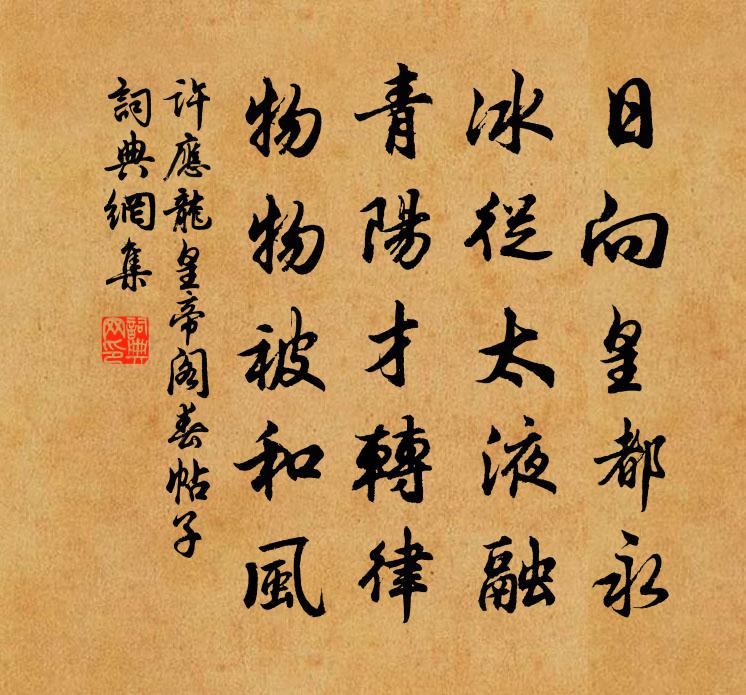 日向皇都永
冰從太液融
青陽才轉律
物物被和風
許應龍皇帝閣春帖子
詞典網集
詞典
网印